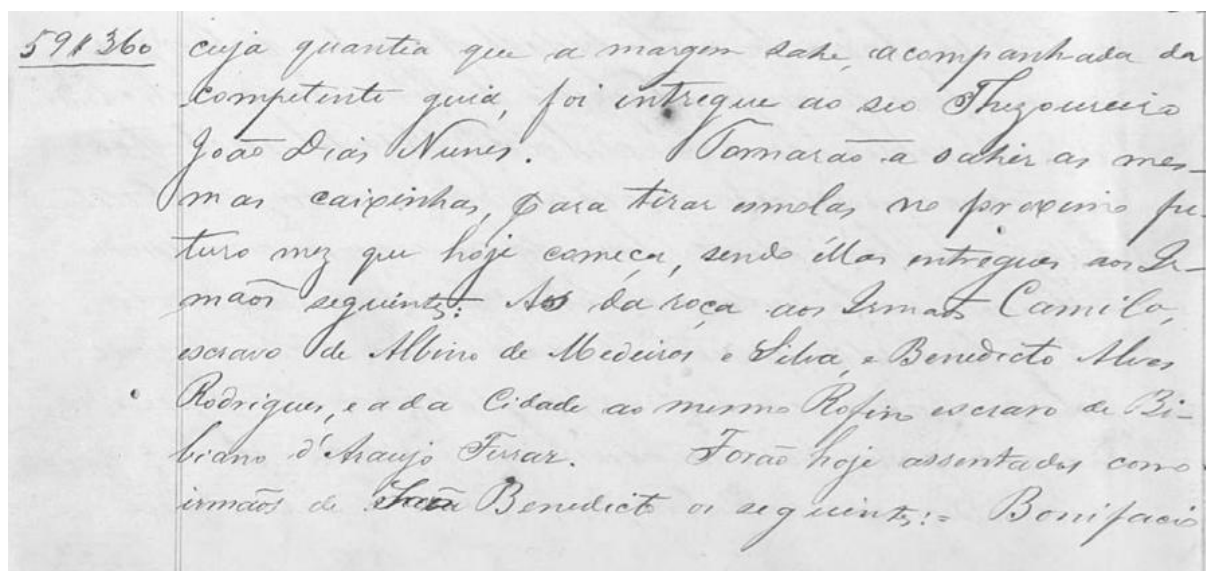 59$360 cuja quantia que a margem sahe, acompanhada da
competente guia, foi entregue ao seo Thezoureiro
João Dias Nunes. Tornarão a sahir as mes-
mas caixinhas, para tirar esmolas no proximo fu-
turo mez que hoje começa, sendo éllas entregues aos Ir-
mãos seguintes: As da roça aos Irmãos Camilo,
escravo de Albino de Medeiros e Silva, e Benedicto Alves
Rodrigues, e a da Cidade ao mesmo Rofino escravo de Bi-
biano d'Araujo Ferraz. Forão hoje assentados como
irmãos de São Benedicto os seguintes:= Bonifacio